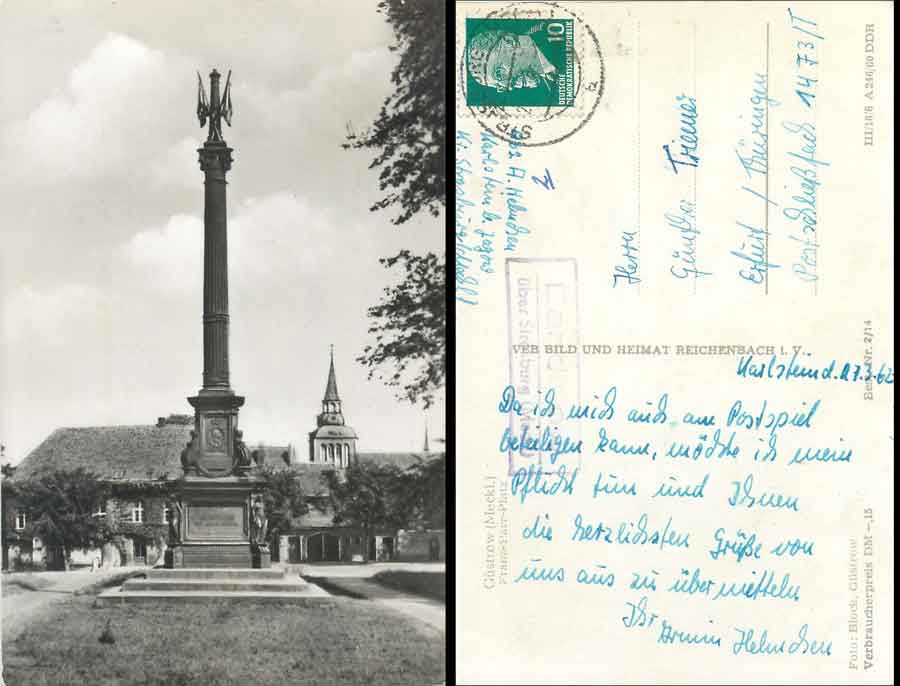 10
DEUTSCHE
DEMOKRATISCHE REPUBLIK
STRASB
Abs. A. Helmchen
Karlstein b. Jagow
Kr. Strasburg
Herrn
Günther Triemer
Erfurt / Thüringen
Postschließfach 1473/I
III/18/6 A 246/60 DDR
VEB BILD UND HEIMAT REICHENBACH i. V.
Best.-Nr. 2/14
über Strasburg
Karlstein d. 27.3.62
Da ich mich auch am Postspiel
beteiligen kann, möchte ich meine
Pflicht tun und Ihnen
die herzlichsten Grüße von
uns aus zu übermitteln
Ihr
Armin Helmchen
Güstrow (Meckl.)
Franz-Parr-Platz
Foto: Block, Güstrow
Verbraucherpreis DM -,15